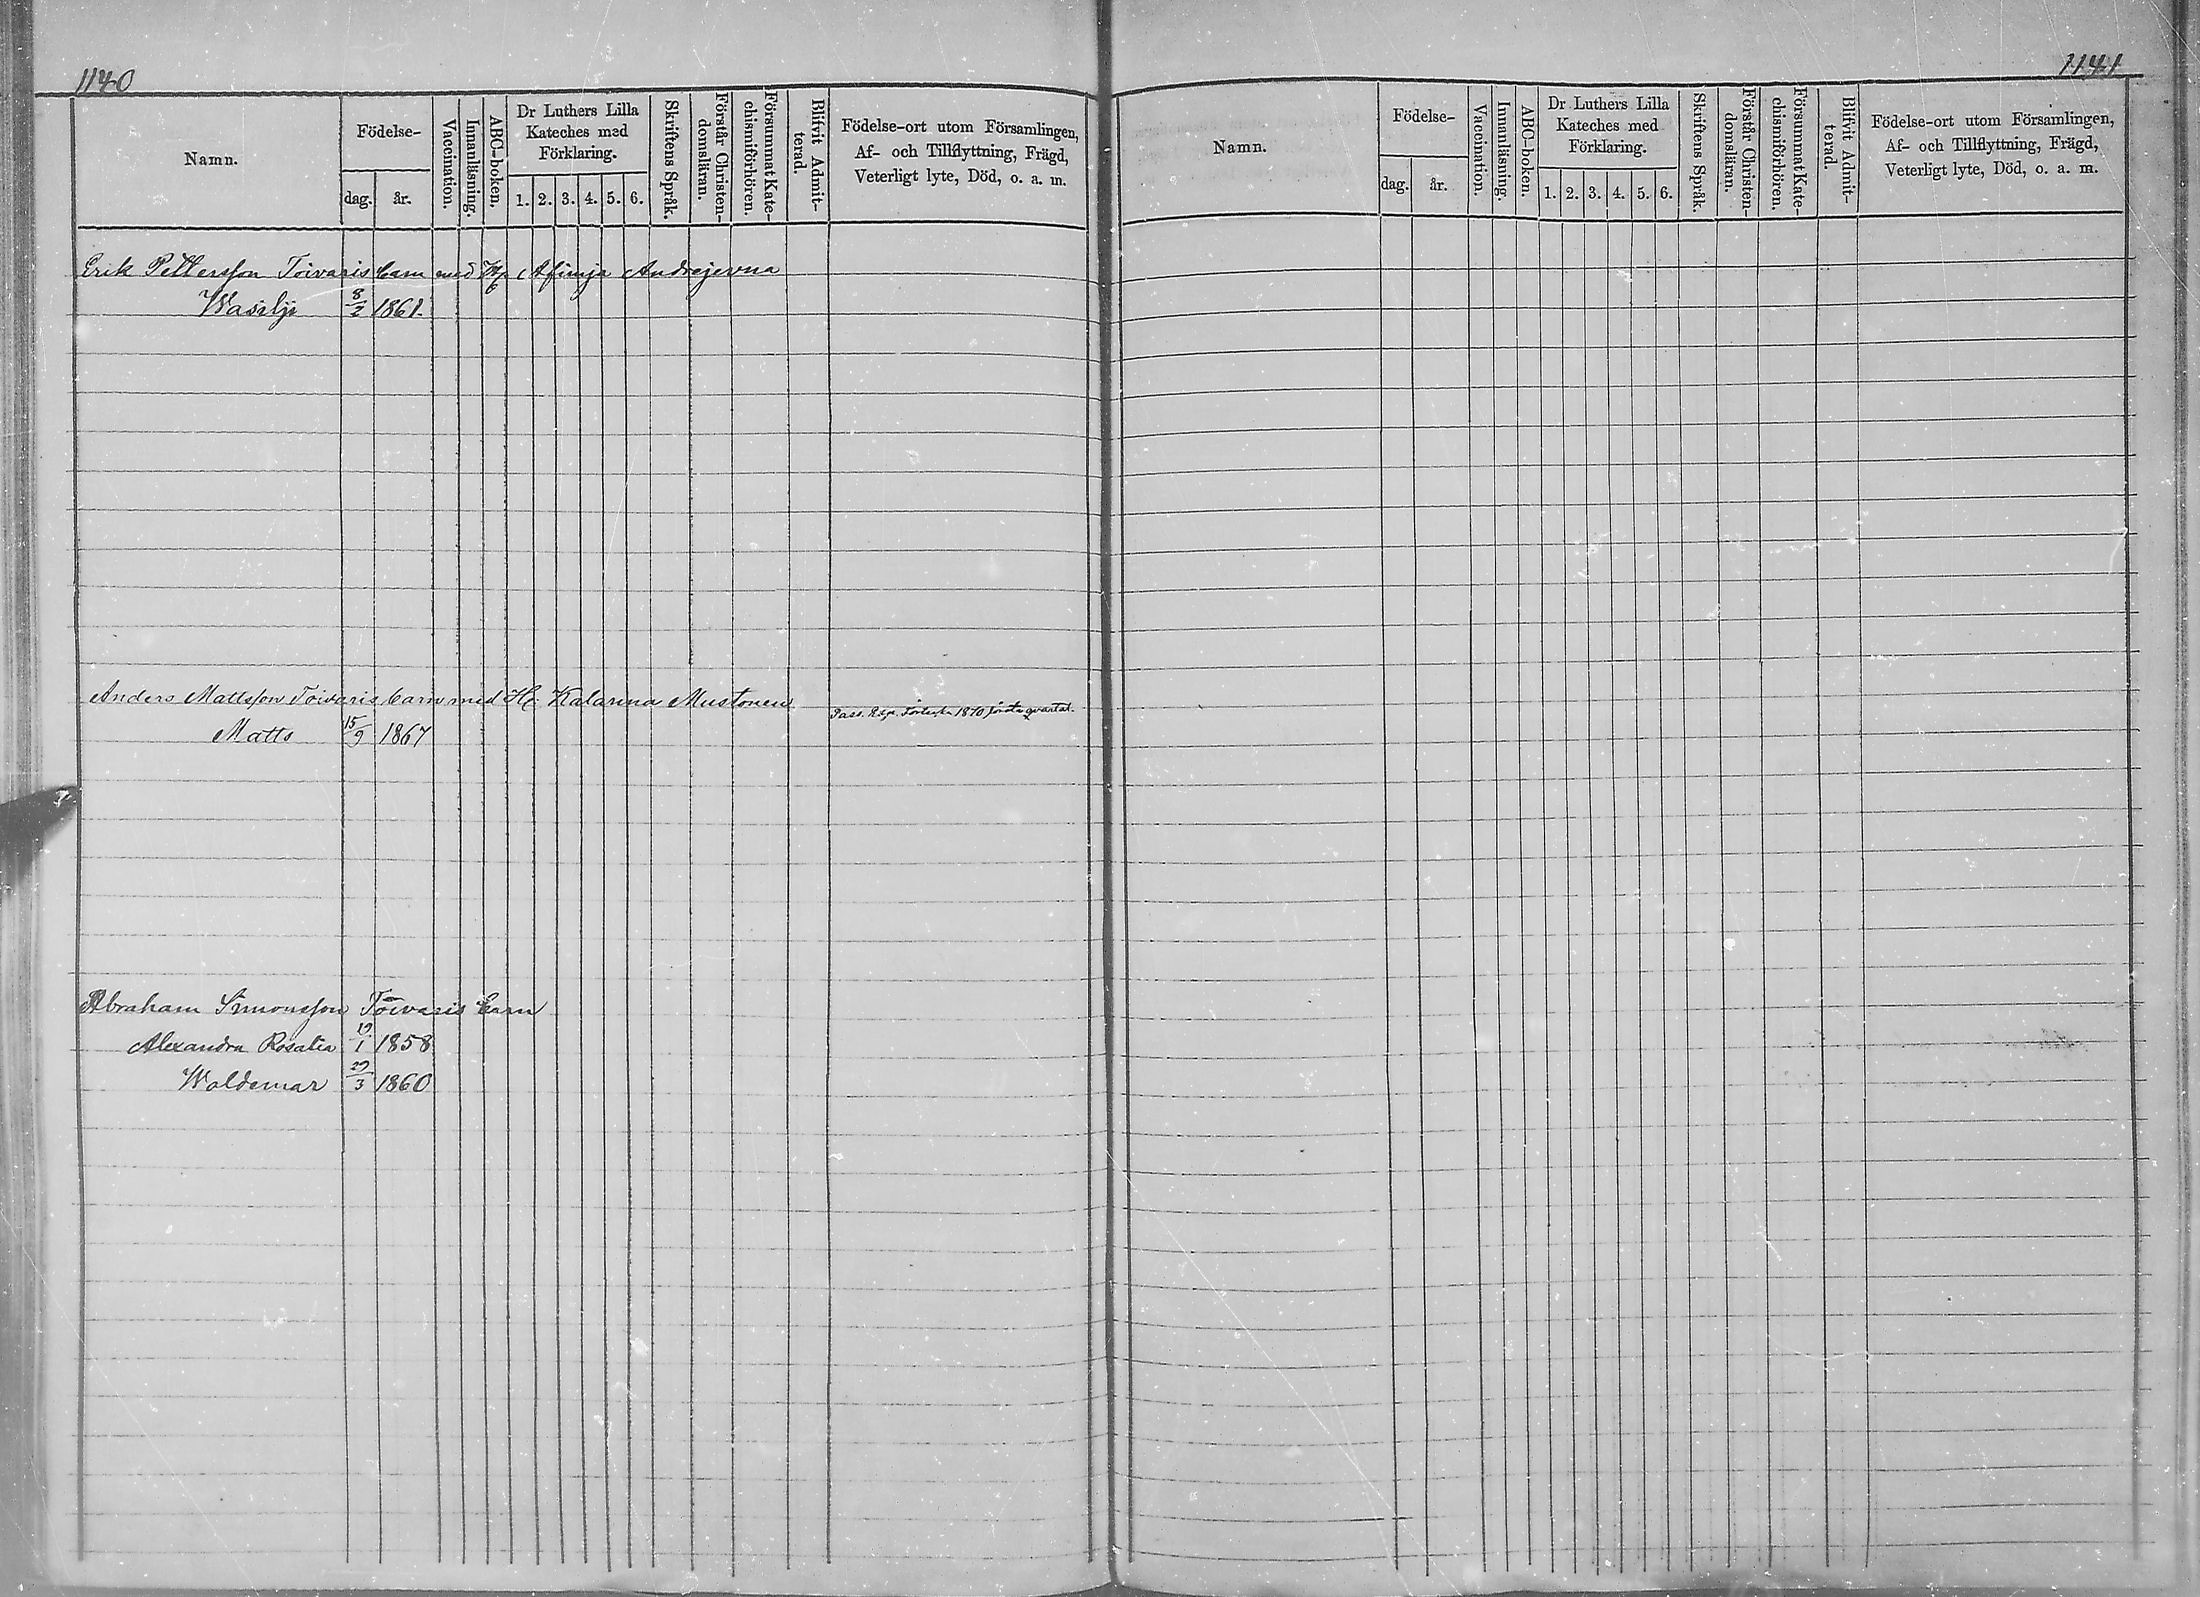 1140
Namn.
Födelse-
dag.
år.
Vaccination.
Innanläsning.
ABC-boken.
Dr Luthers Lilla
Kateches med
Förklaring.
1. 2. 3. 4. 5. 6.
Skriftens Språk.
Förstår Christen-
domsläran.
Försummat Kate-
chismiförhören.
Blifvit Admit-
terad.
Födelse-ort utom Församlingen,
Af- och Tillflyttning, Frägd,
Veterligt lyte, Död, o. a. m.
Erik Pettersson Toivaris barn med Afimja Andrejevna
Wasilji 8/2 1861.
Anders Mattsson Toivaris barn med H. Katarina Mustonen
Pass. 1870 första qvartal.
Matts 15/9 1867
Abraham Simonsson Toivaris barn
Alexandra Rosalia 19/1 1858
Woldemar 29/3 1860
1141
Namn.
Födelse-
dag.
år.
Vaccination.
Innanläsning.
ABC-boken.
Dr Luthers Lilla
Kateches med
Förklaring.
1. 2. 3. 4. 5. 6.
Skriftens Språk.
Förstår Christen-
domsläran.
Försummat Kate-
chismiförhören.
Blifvit Admit-
terad.
Födelse-ort utom Församlingen,
Af- och Tillflyttning, Frägd,
Veterligt lyte, Död, o. a. m.